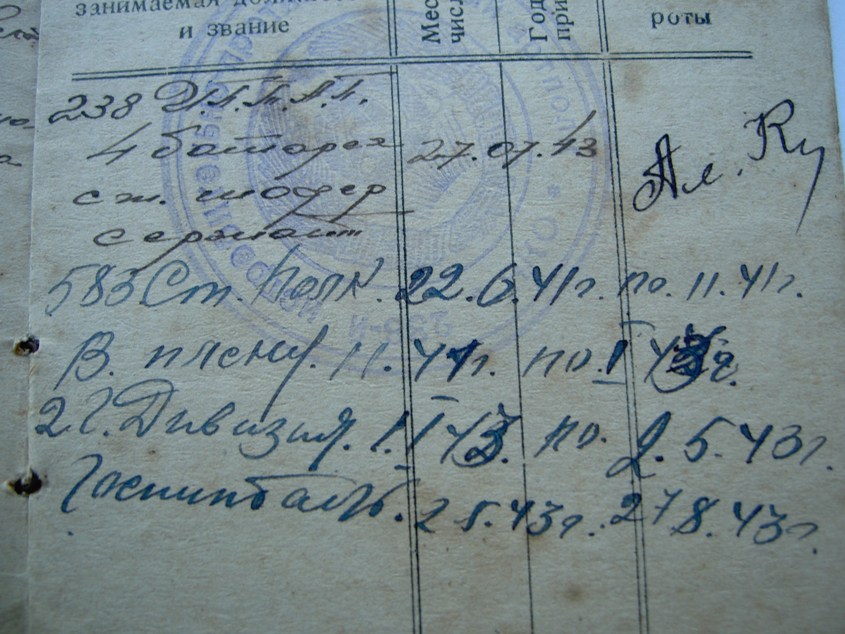 занимаемая должнос
и звание
Мес
числ
Год
при
роты
238
4 батарея 27.07.43
ст. шофер
сержант
Ал. Ку
583 Ст. Полк. 22.6.41г. по. 11.41г.
В. плену. 11.41г. по. I 43г.
2.Г. Дивизия. I 43. по. 2.5.43г.
Госпиталь. 2 5.43г. 27 8.43г.